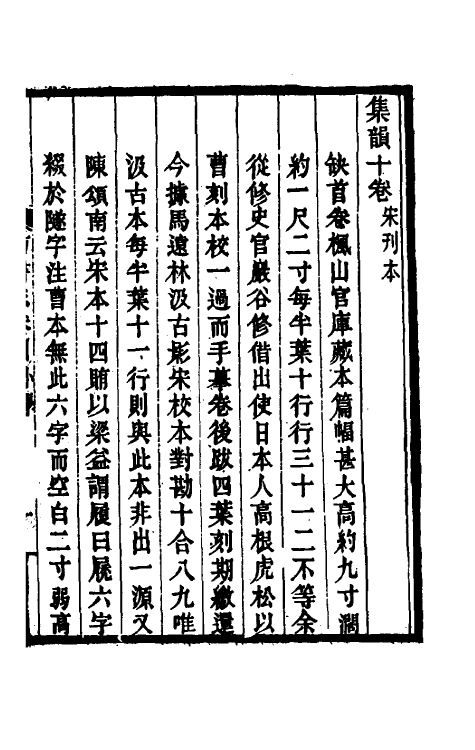 集韻十卷宋刊本
缺首卷楓山官庫藏本篇幅甚大高約九寸濶
約一尺二寸每半葉十行行三十一二不等余
從修史官巖谷修借出使日本人高根虎松以
曹刻本校一過而手摹卷後跋四葉刻期繳還
今據馬遠林汲古影宋校本對勘十合八九唯
汲古本每半葉十一行則與此本非出一源又
陳頌南云宋本十四賄以梁益謂履曰屣六字
綴於隧字注曹本無此六字而空白二寸弱高